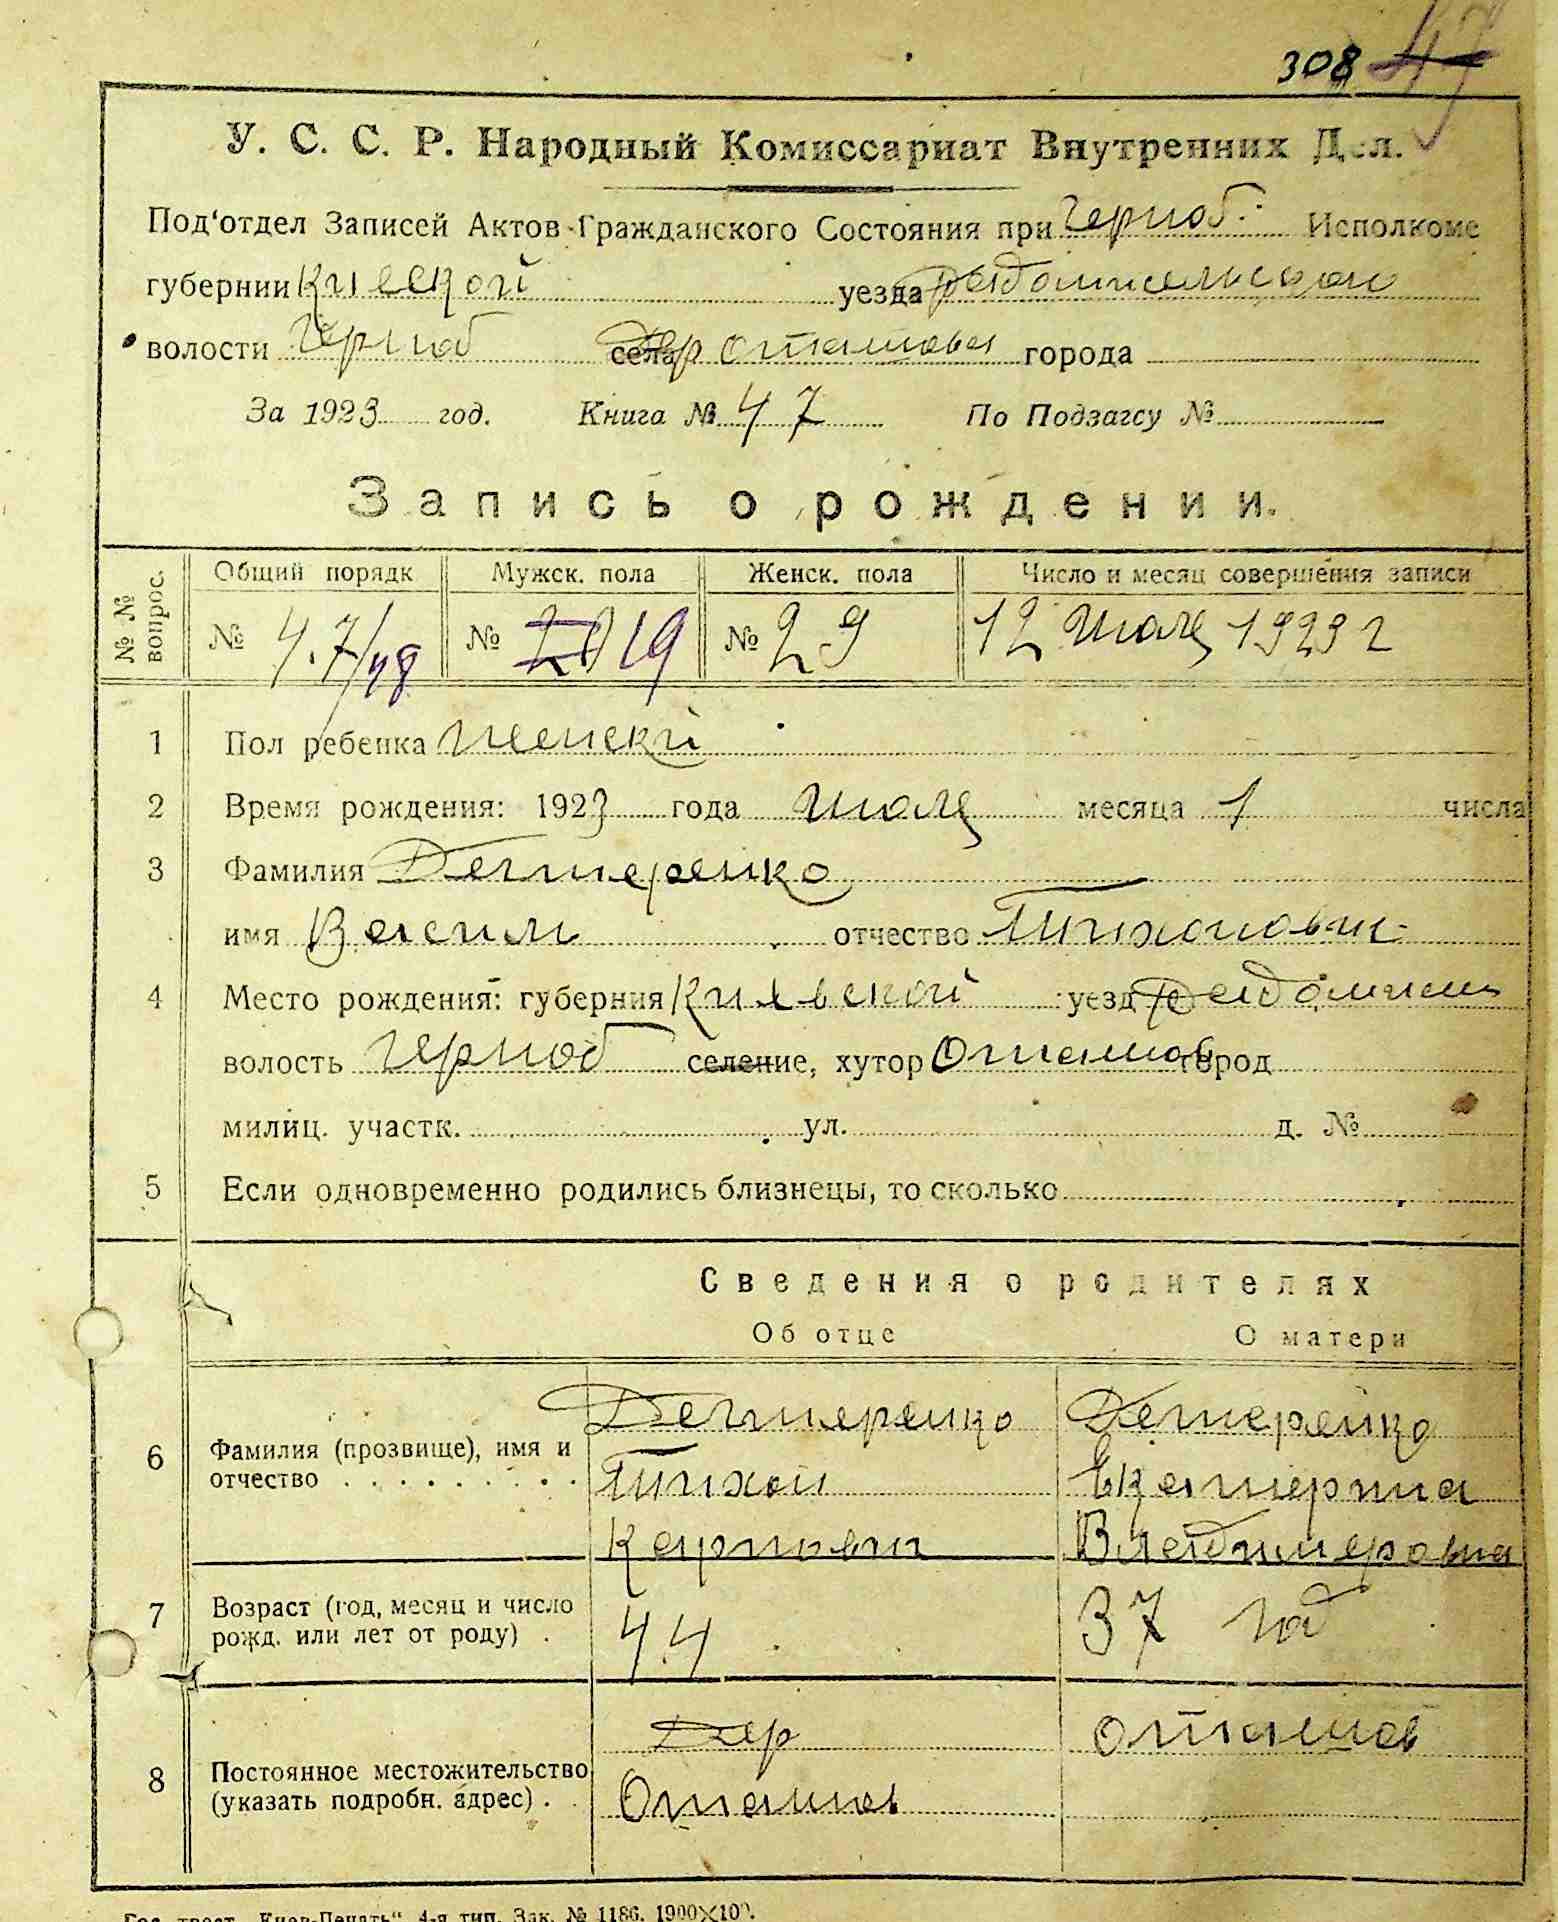 308 47
У. С. С. Р. Народный Комиссариат Внутренних Дел.
Под‘отдел Записей Актов Гражданского Состояния при Черноб. Исполкоме
губернии Киевской уезда Радомисельской
волости Черноб села дер Оташова города
За 1923 год. Книга № 47 По Подзагсу №
Запись о рождении.
№ № вопрос. Общий порядк Мужск. пола Женск. пола Число и месяц совершения записи
№ 47/48 № 20 19 № 29 12 Июля 1923 г
1 Пол ребенка Женский
2 Время рождения: 1923 года Июля месяца 1 числа
3 Фамилия Дегтеренко
имя Васил отчество Тихонович
4 Место рождения: губерния Киявской уезд Радомисль
волость Черноб селение, хутор Оташов город
милиц. участк. ул. д. №
5 Если одновременно родились близнецы, то сколько
Сведения о родителях
Об отце О матери
6 Фамилия (прозвище), имя и отчество Дегтяренко Дегтеренко
Тихон Екатерина
Карпович Владимеровна
7 Возраст (год, месяц и число рожд. или лет от роду) 44 37 год
8 Постоянное местожительство (указать подробн. адрес) Дер Оташов
Оташов
Гос. трест „Киев-Печать“ 4-я тип. Зак. № 1186. 1900×100.